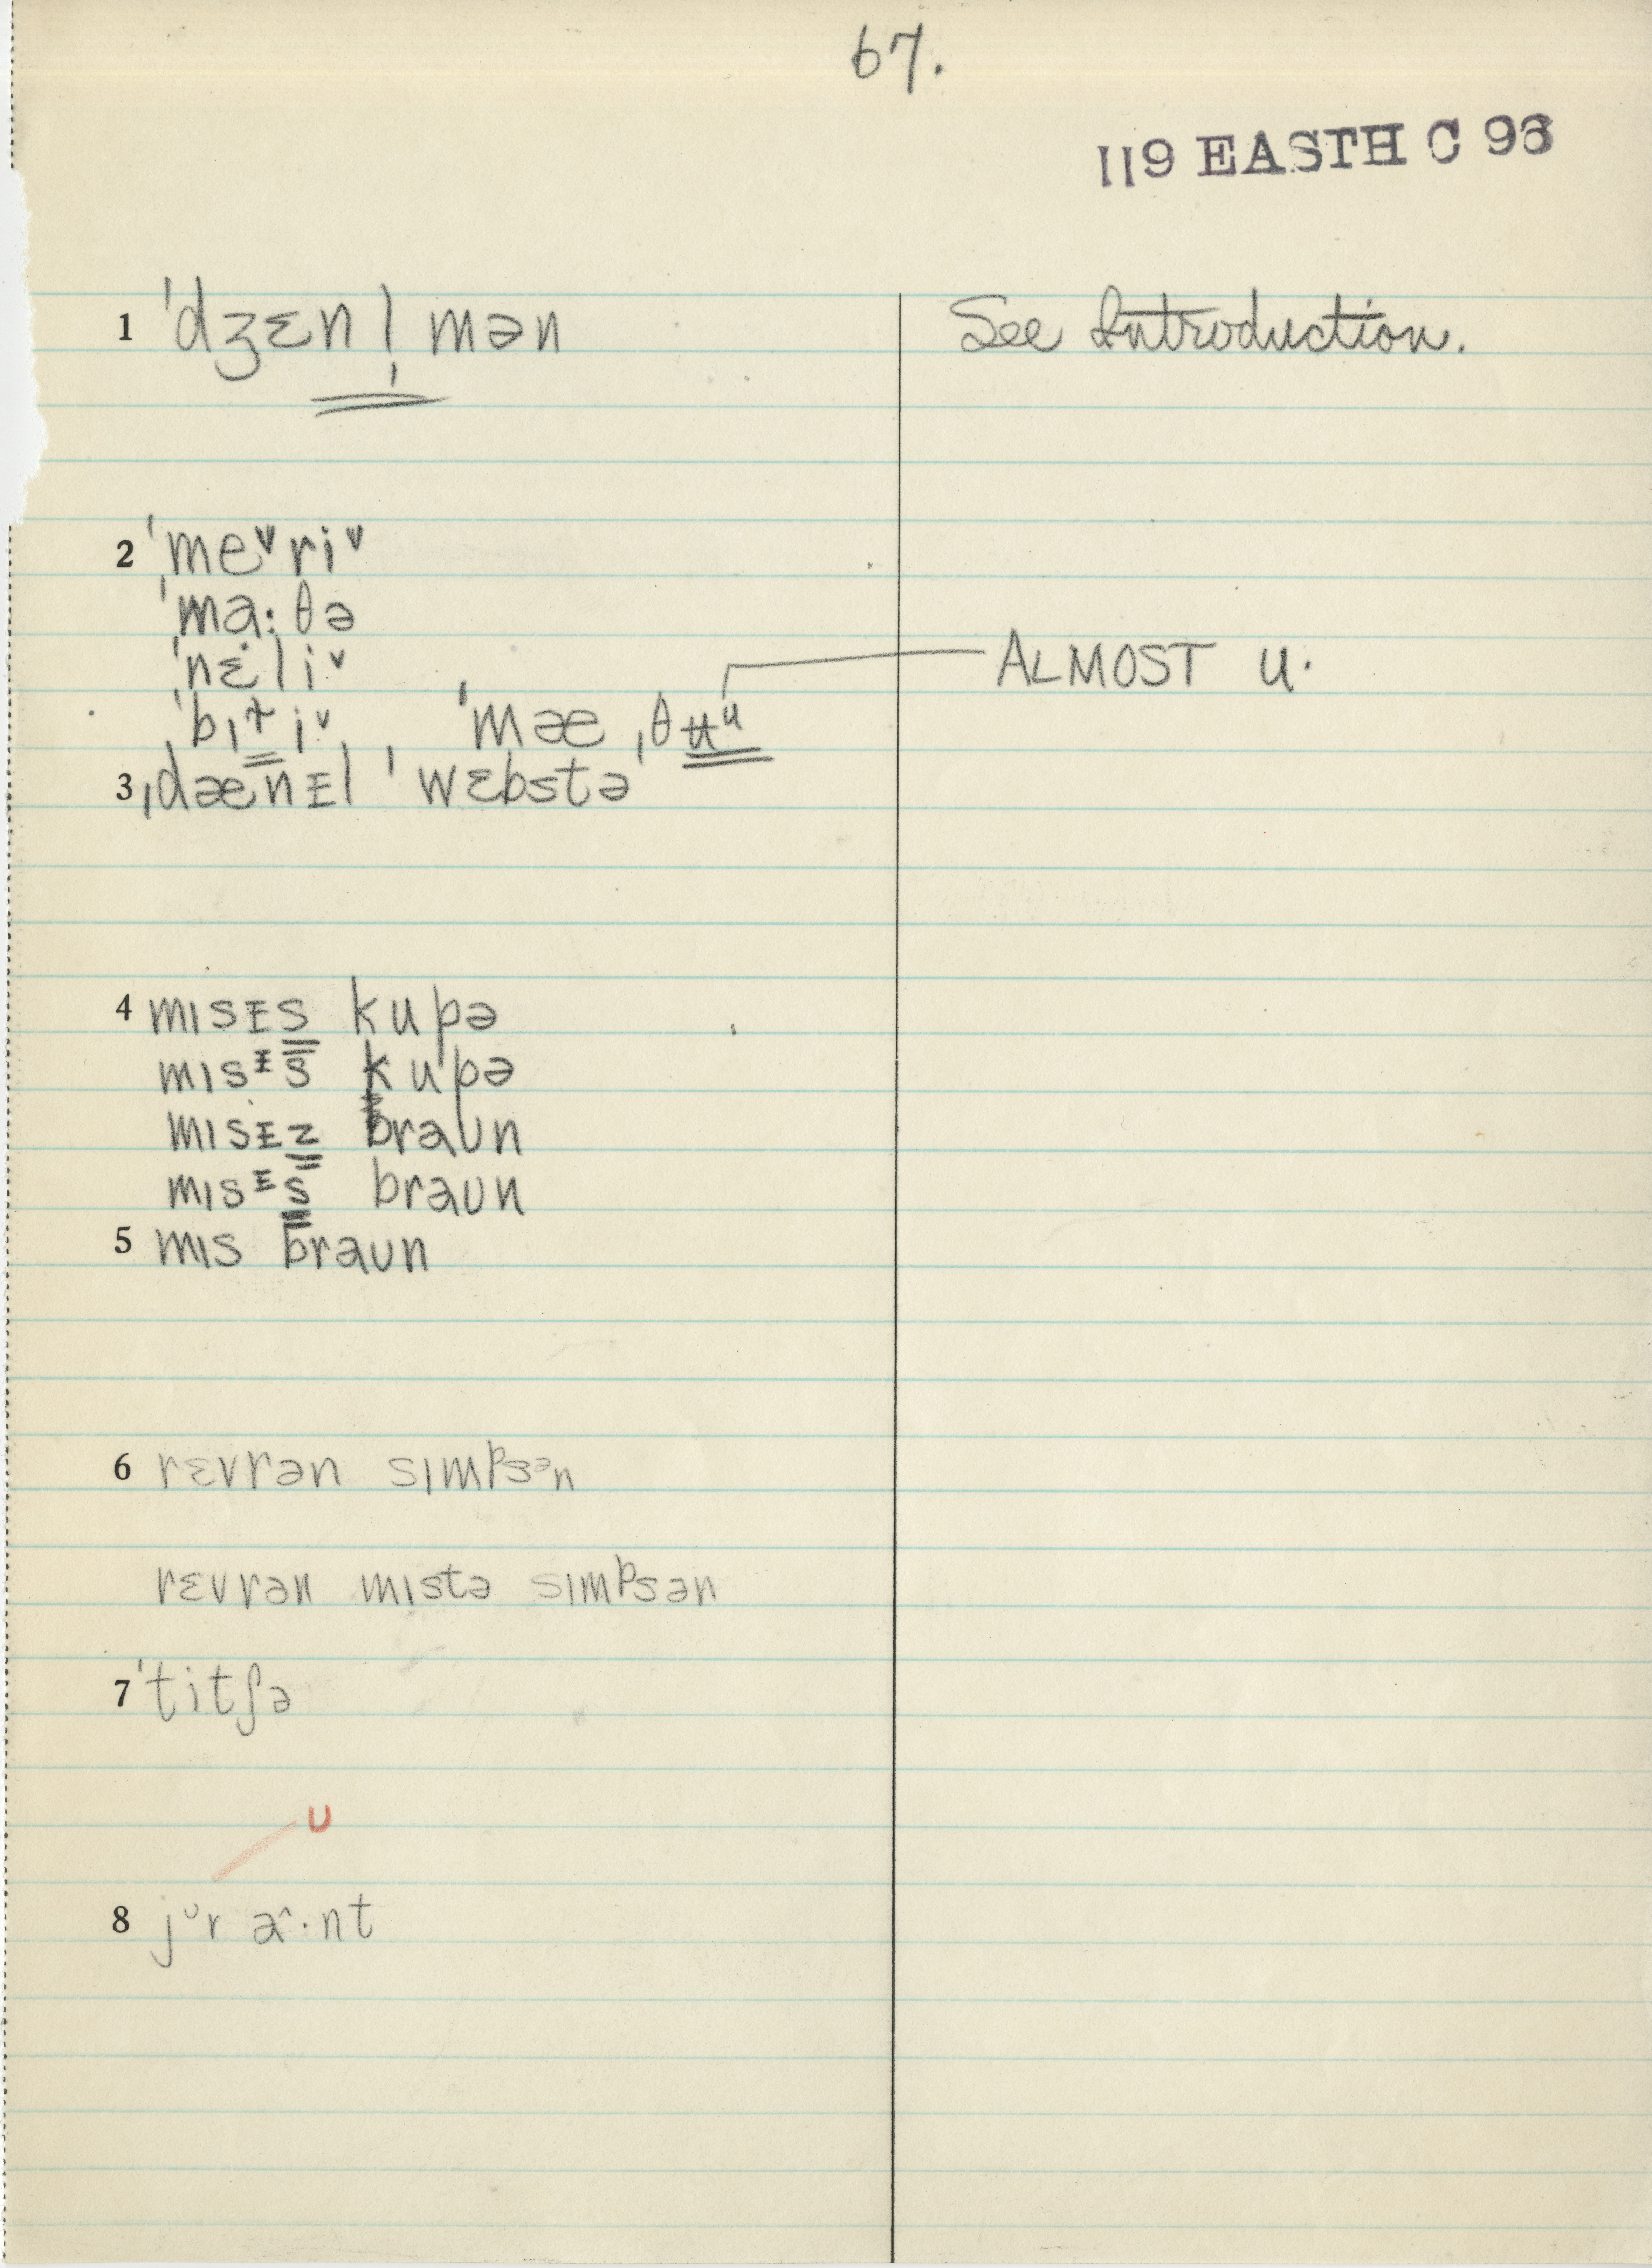 67.
119 EASTH C 93
1 ˈdʒɛnl̩mən See Introduction.
2 ˈme˅ri˅
ˈma:θə
ˈnɛ̇li˅
ˈbɪt̬i˅ ˈmæˌθʉᵘ ALMOST u.
3 ˌdænᵻl ˈwɛbstə
4 mɪsᵻs kupə
mɪsᶧs kupə
mɪsᵻz braʊn
mɪsᶧs braʊn
5 mɪs braʊn
6 rɛvrən sɪmᵖsᵊn
rɛvrən mɪstə sɪmᵖsən
7 ˈtitʃə
ʊ
8 jᶷr a^·nt